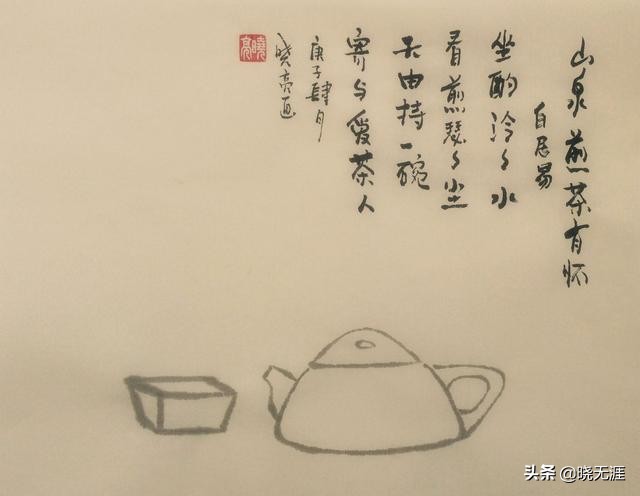 山泉煎茶有怀
白居易
坐酌泠々水
看煎瑟々尘
无由持一碗
寄与爱茶人
庚子肆月
晓亮
曉亮
头条 @晓无涯